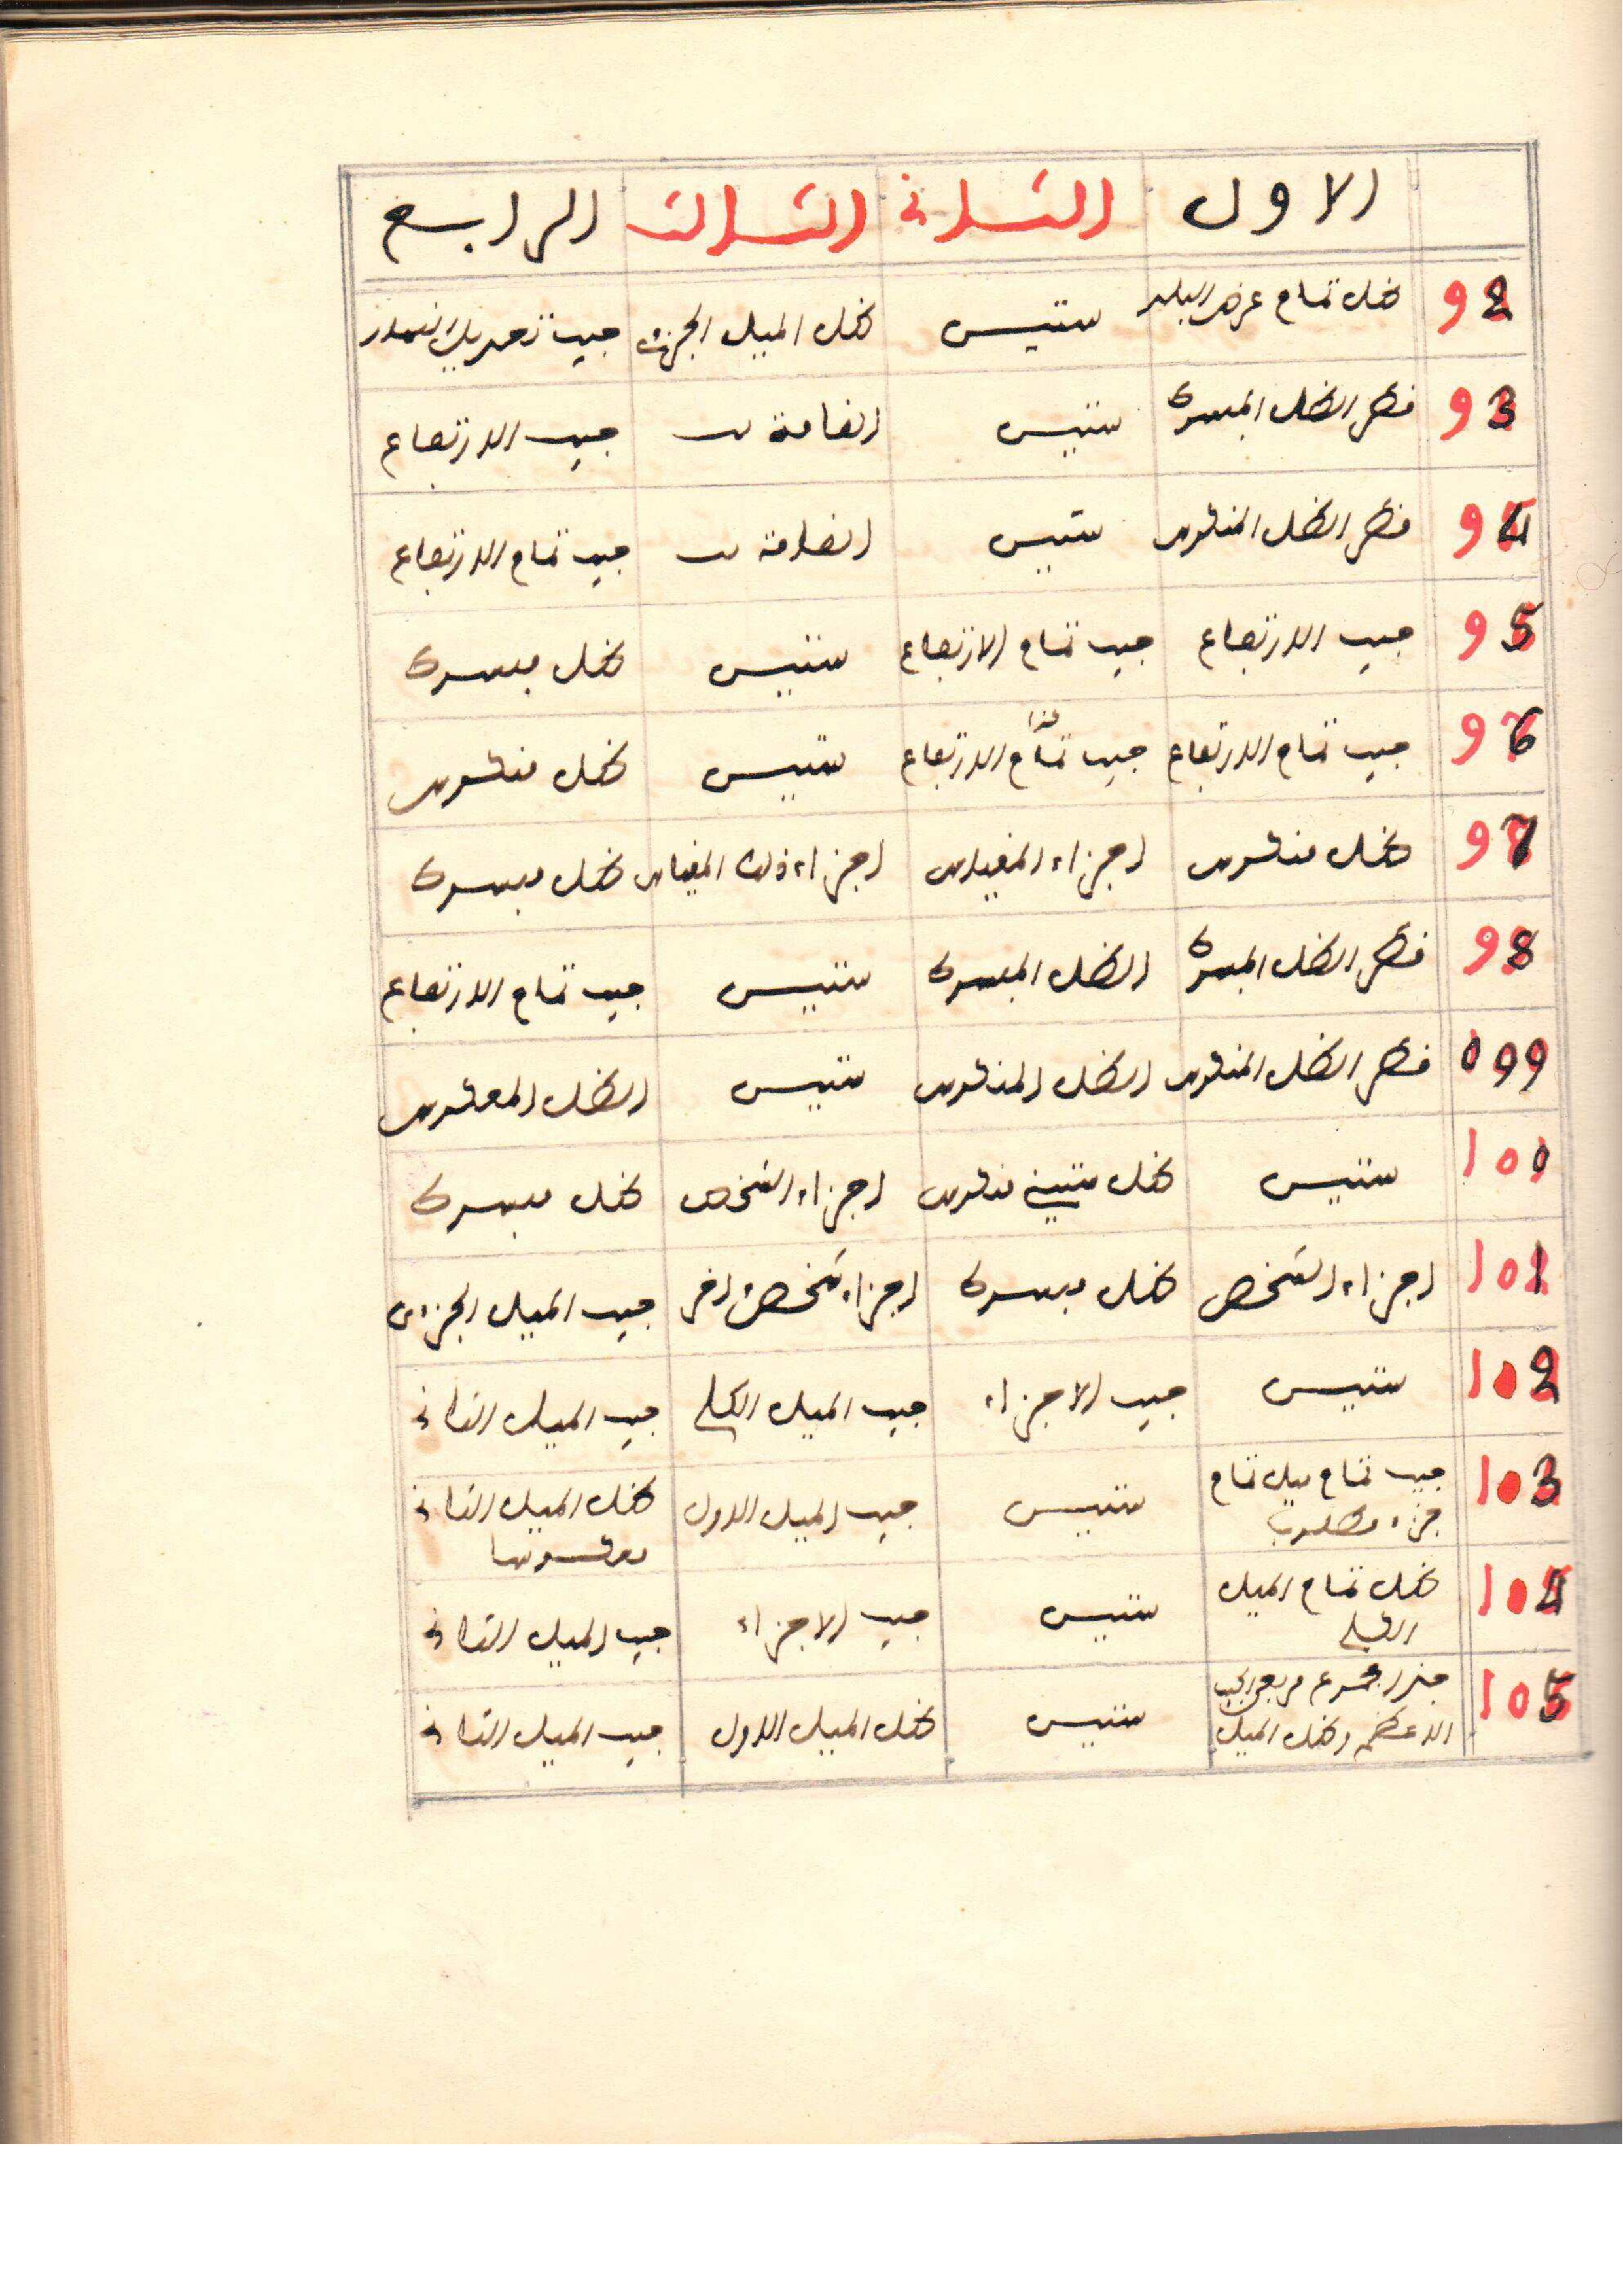 الاول الثانى الثالث الرابع
92 ظل تمام عرض البلد ستين ظل الميل الجزئى جيب تعديل النهار
93 قطر الظل المبسوط ستين القامة جيب الارتفاع
94 قطر الظل المنكوس ستين القامة جيب تمام الارتفاع
95 جيب الارتفاع جيب تمام الارتفاع ستين ظل مبسوط
96 جيب تمام الارتفاع جيب تمام الارتفاع ستين ظل منكوس
97 ظل منكوس اجزاء المقياس اجزاء ذلك المقياس ظل مبسوط
98 قطر الظل المبسوط الظل المبسوط ستين جيب تمام الارتفاع
99 قطر الظل المنكوس الظل المنكوس ستين الظل المعكوس
100 ستين ظل ستينى منكوس اجزاء الشخص ظل مبسوط
101 اجزاء الشخص ظل مبسوط اجزاء شخص اخر جيب الميل الجزئى
102 ستين جيب الاجزاء جيب الميل الكلى جيب الميل الثانى
103 جيب تمام ميل تمام ستين جيب الميل الاول ظل الميل الثانى
جزء مطلوب معكوسا
104 ظل تمام الميل ستين جيب الاجزاء جيب الميل الثانى
الكلى
105 جذر مجموع مربعى الجيب ستين ظل الميل الاول جيب الميل الثانى
الاعظم وظل الميل